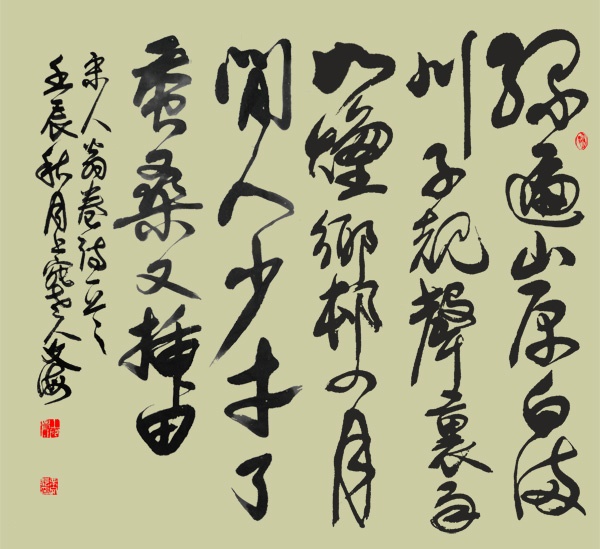 綠遍山原白滿
川子規聲裏雨
如煙鄉邨四月
閒人少才了
蚕桑又插田
宋人翁卷詩一首
壬辰秋月上老人文海